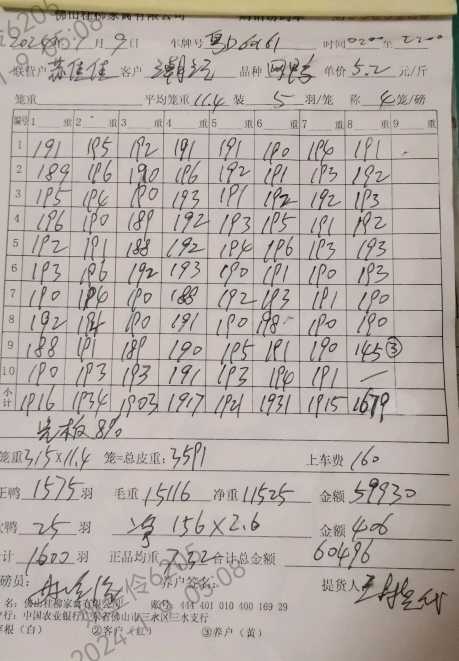 佛山桂柳家禽有限公司
2024年7月9日 车牌号 粤D6961 时间0200至2200
联营户 苏佳佳 客户 品种 单价5.2元/斤
笼重 平均笼重11.4 装 5 羽/笼 称 4笼/磅
编号 1 重 2 重 3 重 4 重 5 重 6 重 7 重 8 重 9 重
1 191 195 192 191 191 190 194 191
2 189 196 190 196 192 191 193 192
3 195 194 190 193 191 192 192 193
4 196 190 189 192 193 195 191 192
5 192 191 188 192 194 196 193 193
6 193 196 192 193 190 191 190 193
7 190 194 190 188 192 193 191 190
8 192 194 190 191 190 198 190 190
9 188 191 189 190 195 191 190 145③
10 190 193 193 191 193 194 191 —
小计 1916 1934 1903 1917 1921 1931 1915 1679
笼重315×11.4 笼=总皮重:3591 上车费 160
正鸭 1575 羽 毛重 15116 净重 11525 金额 59930
鸭 25 羽 156×2.6 金额 406
计 1600 羽 正品均重 7.32 合计总金额 60496
磅员: 养户签名: 提货人
名:佛山桂柳家禽有限公司 账号 444 401 010 400 169 29
行:中国农业银行广东省佛山市三水区三水支行
存根(白) ②客户(红) ③养户(黄)